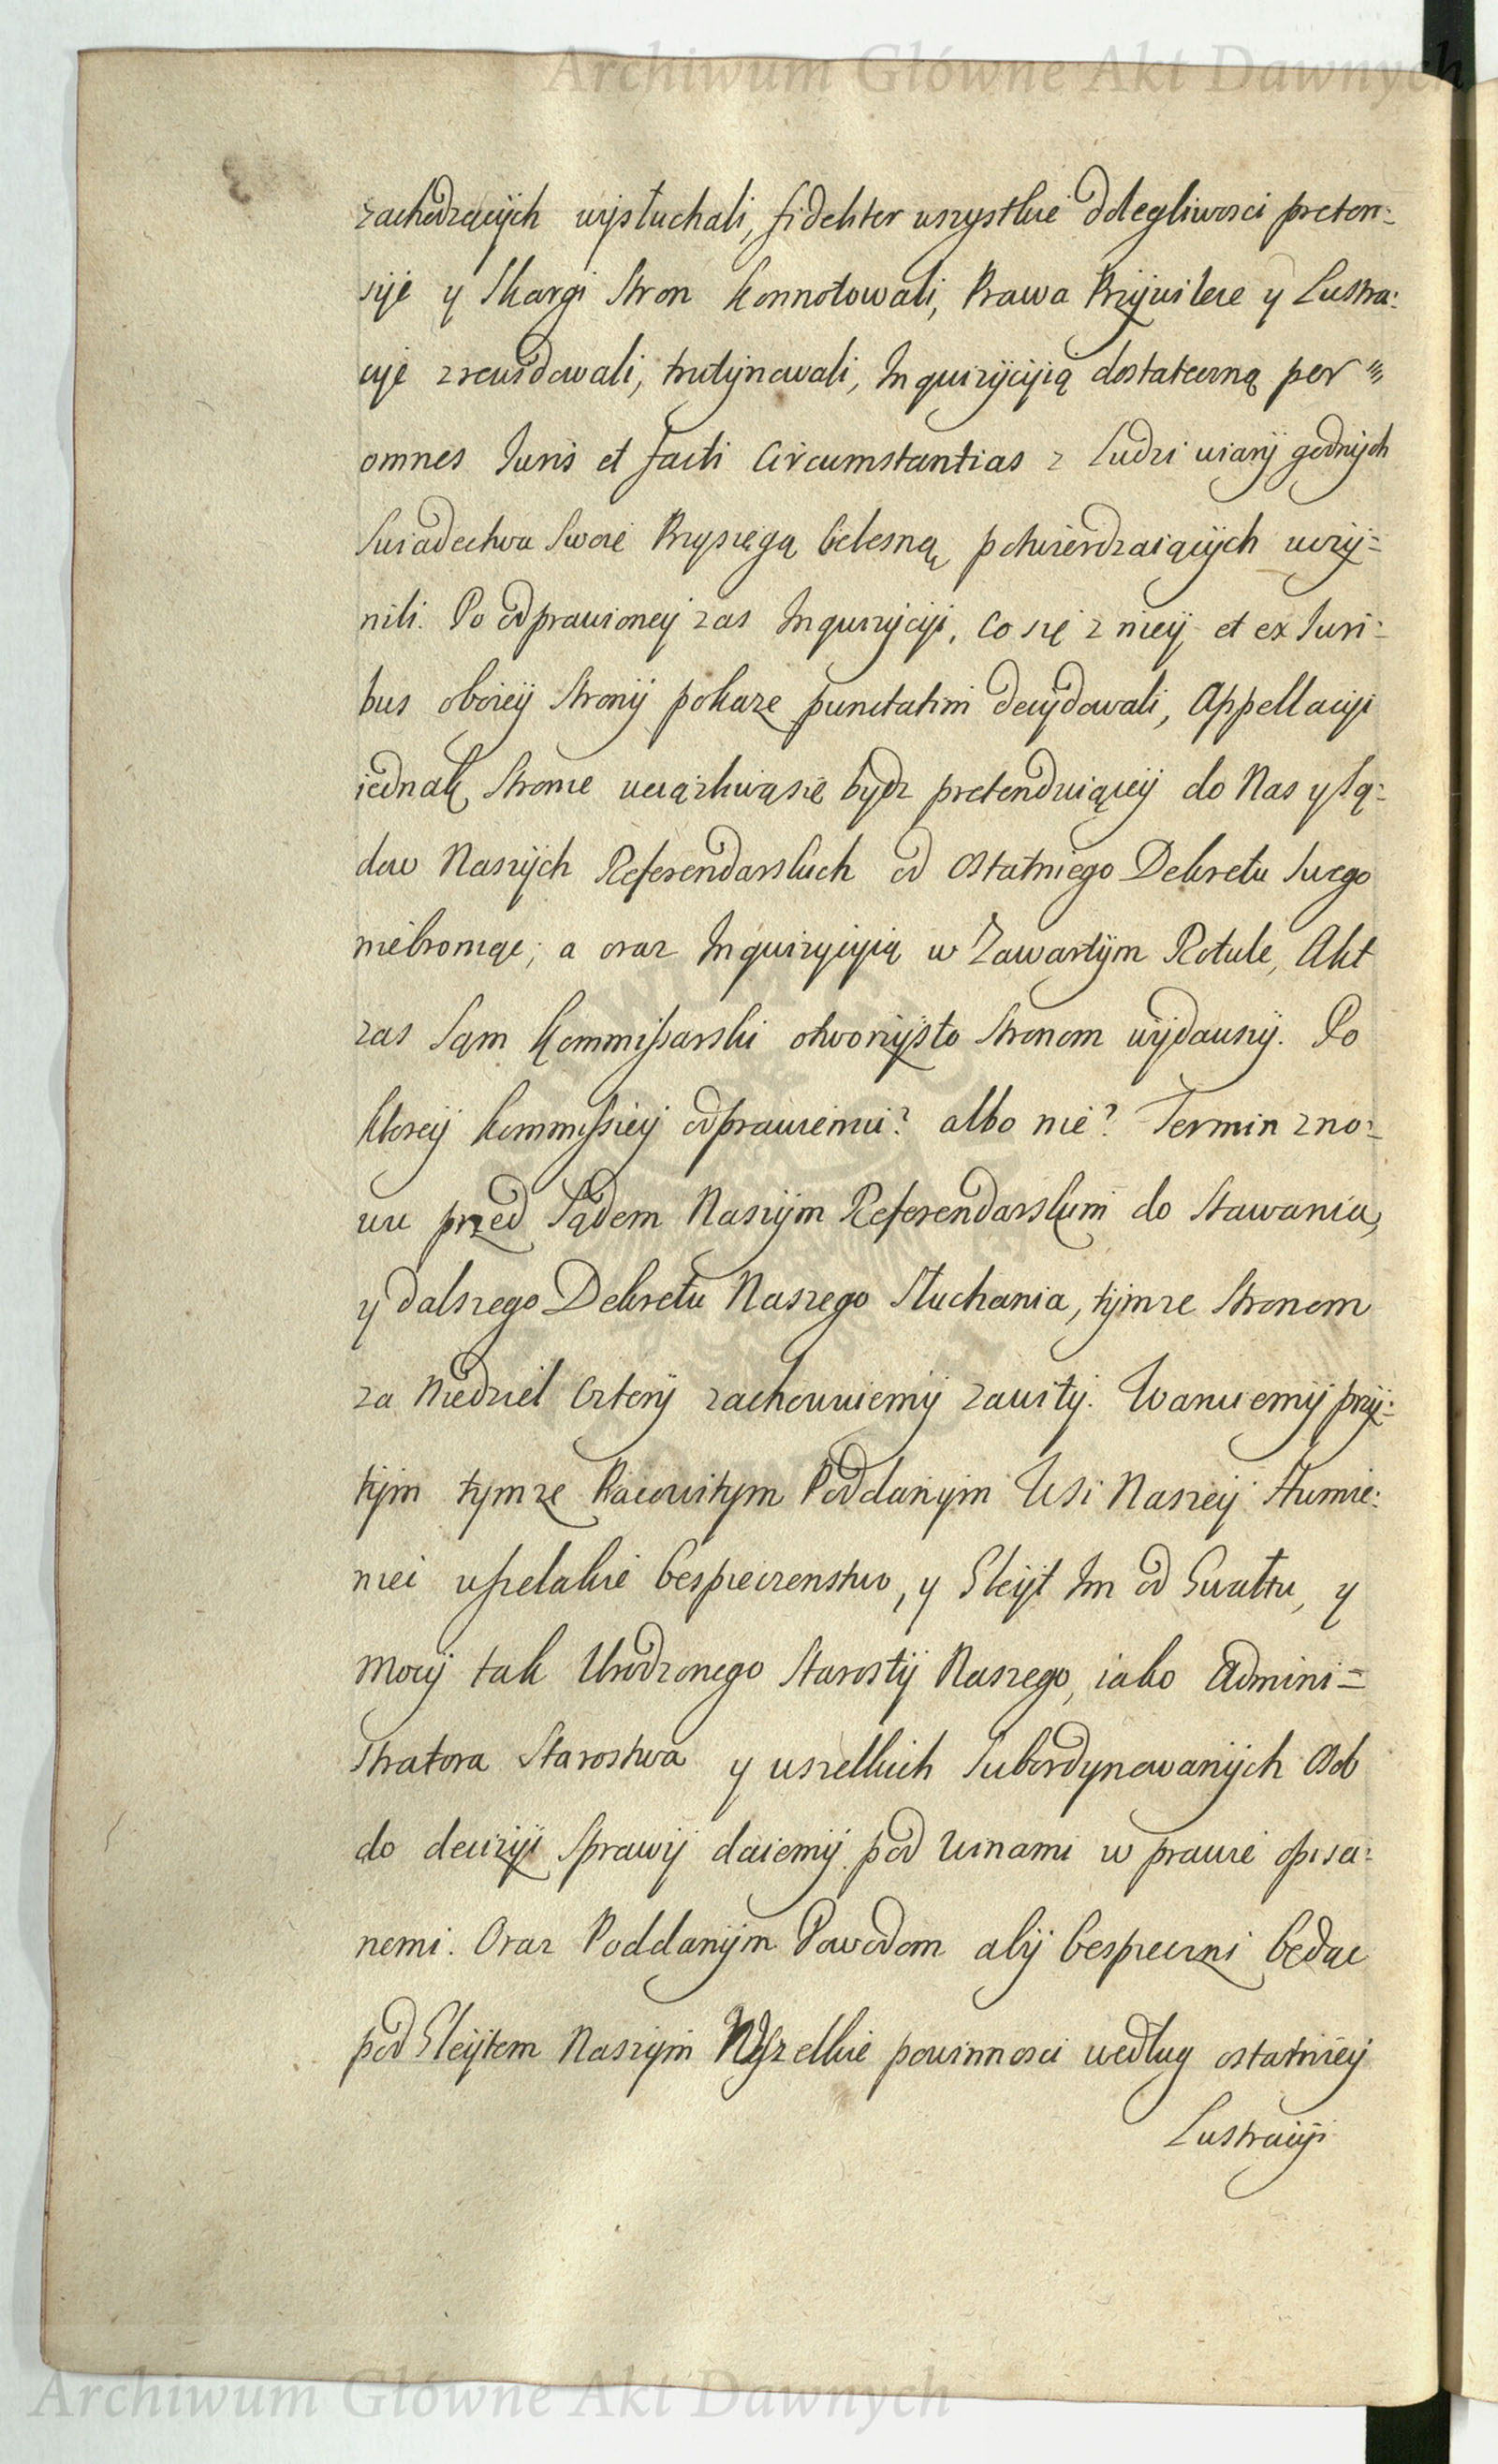 Archiwum Główne Akt Dawnych
zachodzących wysłuchali, fideliter wszystkie dolegliwosci preten:
sye y Skargi Stron konnotowali, Prawa Przywileie y Lustra:
cye zrewidowali, trutynowali, Inquizycyią dostateczną per
omnes Juris et facti Circumstantias z Ludzi wiary godnych
Swiadectwa Swoie Przysięgą Cielesną potwierdzaiących uczy=
nili. Po odprawioney zas Inquizycyi, co się z niey et ex Juri:
bus oboiey Strony pokaze punctatim decydowali, Appellacyi
iednak Stronie uciązliwą się bydz pretenduiącey do Nas y Są:
dow Naszych Referendarskich od ostatniego Dekretu Swego
niebroniąc; a oraz Inquizycyią w Zawartym Rotule, Akt
zas Sąm Kommissarski otworzysto Stronom wydawszy. Po
ktorey Kommissiey odprawieniu? albo nie? Termin zno:
wu przed Sądem Naszym Referendarskim do Stawania,
y dalszego Dekretu Naszego Słuchania, tymze Stronom
za Niedziel Cztery zachowuiemy zawity. Waruiemy przy:
tym tymze Pracowitym Poddanym Wsi Naszey Stumie:
niei wszelakie bespieczenstwo, y Gleyt Im od Gwałtu, y
mocy tak Urodzonego Starosty Naszego, iako Admini=
stratora Starostwa y wszelkich Subordynowanych Osob
do decizyi Sprawy daiemy pod winami w prawie opisa:
nemi. Oraz Poddanym Powodom aby bespieczni będąc
pod Gleytem Naszym Wszelkie powinnosci według ostatniey
Lustracyi
Archiwum Główne Akt Dawnych